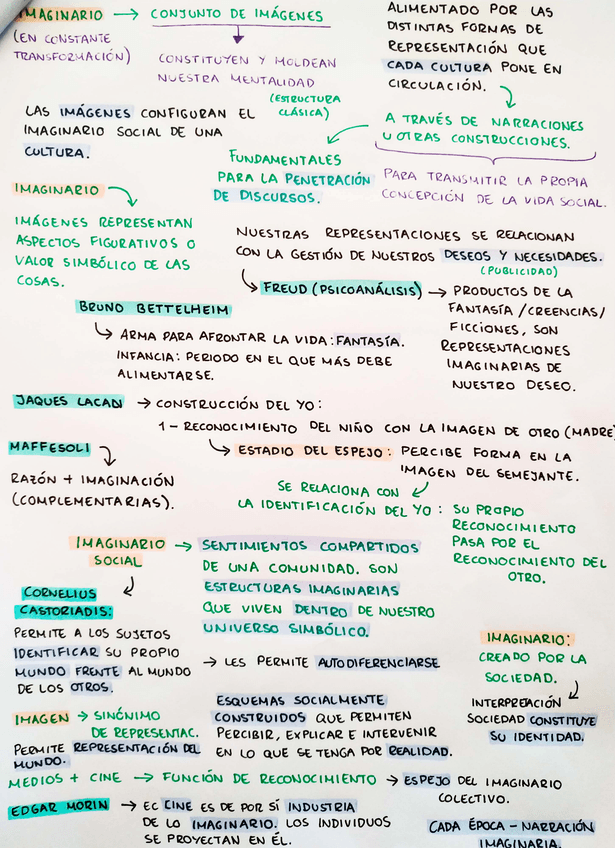 IMAGINARIO → CONJUNTO DE IMÁGENES
(EN CONSTANTE
TRANSFORMACIÓN)
CONSTITUYEN Y MOLDEAN
NUESTRA MENTALIDAD
(ESTRUCTURA
CLÁSICA)
ALIMENTADO POR LAS
DISTINTAS FORMAS DE
REPRESENTACIÓN QUE
CADA CULTURA PONE EN
CIRCULACIÓN.
A TRAVÉS DE NARRACIONES
U OTRAS CONSTRUCCIONES.
LAS IMÁGENES CONFIGURAN EL
IMAGINARIO SOCIAL DE UNA
CULTURA.
FUNDAMENTALES
PARA LA PENETRACIÓN
DE DISCURSOS.
PARA TRANSMITIR LA PROPIA
CONCEPCIÓN DE LA VIDA SOCIAL.
IMAGINARIO
IMÁGENES REPRESENTAN
ASPECTOS FIGURATIVOS O
VALOR SIMBÓLICO DE LAS
COSAS.
NUESTRAS REPRESENTACIONES SE RELACIONAN
CON LA GESTIÓN DE NUESTROS DESEOS Y NECESIDADES.
(PUBLICIDAD)
FREUD (PSICOANÁLISIS) → PRODUCTOS DE LA
FANTASÍA/CREENCIAS/
FICCIONES, SON
REPRESENTACIONES
IMAGINARIAS DE
NUESTRO DESEO.
BRUNO BETTELHEIM
ARMA PARA AFRONTAR LA VIDA: FANTASÍA.
INFANCIA: PERIODO EN EL QUE MÁS DEBE
ALIMENTARSE.
JAQUES LACAN → CONSTRUCCIÓN DEL YO:
1 - RECONOCIMIENTO DEL NIÑO CON LA IMAGEN DE OTRO (MADRE)
ESTADIO DEL ESPEJO: PERCIBE FORMA EN LA
IMAGEN DEL SEMEJANTE.
MAFFESOLI
RAZÓN + IMAGINACIÓN
(COMPLEMENTARIAS).
SE RELACIONA CON
LA IDENTIFICACIÓN DEL YO: SU PROPIO
RECONOCIMIENTO
PASA POR EL
RECONOCIMIENTO DEL
OTRO.
IMAGINARIO
SOCIAL
→ SENTIMIENTOS COMPARTIDOS
DE UNA COMUNIDAD. SON
ESTRUCTURAS IMAGINARIAS
QUE VIVEN DENTRO DE NUESTRO
UNIVERSO SIMBÓLICO.
CORNELIUS
CASTORIADIS:
PERMITE A LOS SUJETOS
IDENTIFICAR SU PROPIO
MUNDO FRENTE AL MUNDO
DE LOS OTROS.
→ LES PERMITE AUTODIFERENCIARSE
IMAGINARIO:
CREADO POR LA
SOCIEDAD.
INTERPRETACIÓN
SOCIEDAD CONSTITUYE
SU IDENTIDAD.
ESQUEMAS SOCIALMENTE
CONSTRUIDOS QUE PERMITEN
PERCIBIR, EXPLICAR E INTERVENIR
EN LO QUE SE TENGA POR REALIDAD.
IMAGEN → SINÓNIMO
DE REPRESENTAC.
PERMITE REPRESENTACIÓN DEL
MUNDO.
MEDIOS + CINE → FUNCIÓN DE RECONOCIMIENTO → ESPEJO DEL IMAGINARIO
COLECTIVO.
EDGAR MORIN → EC CINE ES DE POR SÍ INDUSTRIA
DE LO IMAGINARIO. LOS INDIVIDUOS
SE PROYECTAN EN ÉL.
CADA ÉPOCA - NARRACIÓN
IMAGINARIA.